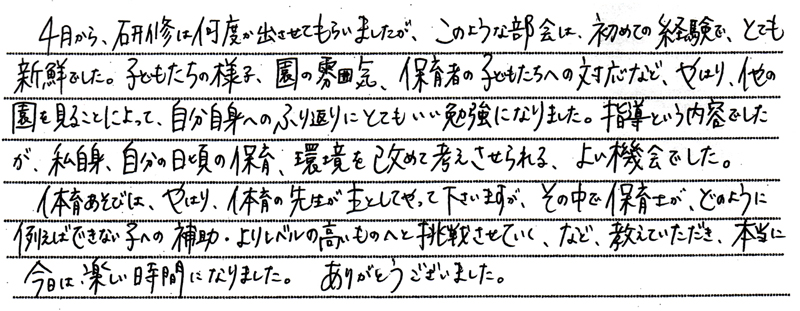 4月から、研修は何度か出させてもらいましたが、このような部会は、初めての経験で、とても
新鮮でした。子どもたちの様子、園の雰囲気、保育者の子どもたちへの対応など、やはり、他の
園を見ることによって、自分自身へのふり返りにとてもいい勉強になりました。指導という内容でした
が、私自身、自分の日頃の保育、環境を改めて考えさせられる、よい機会でした。
体育あそびは、やはり、体育の先生が主としてやって下さいますが、その中で保育士が、どのように
例えばできない子への補助・よりレベルの高いものへと挑戦させていく、など、教えていただき、本当に
今日は、楽しい時間になりました。 ありがとうございました。